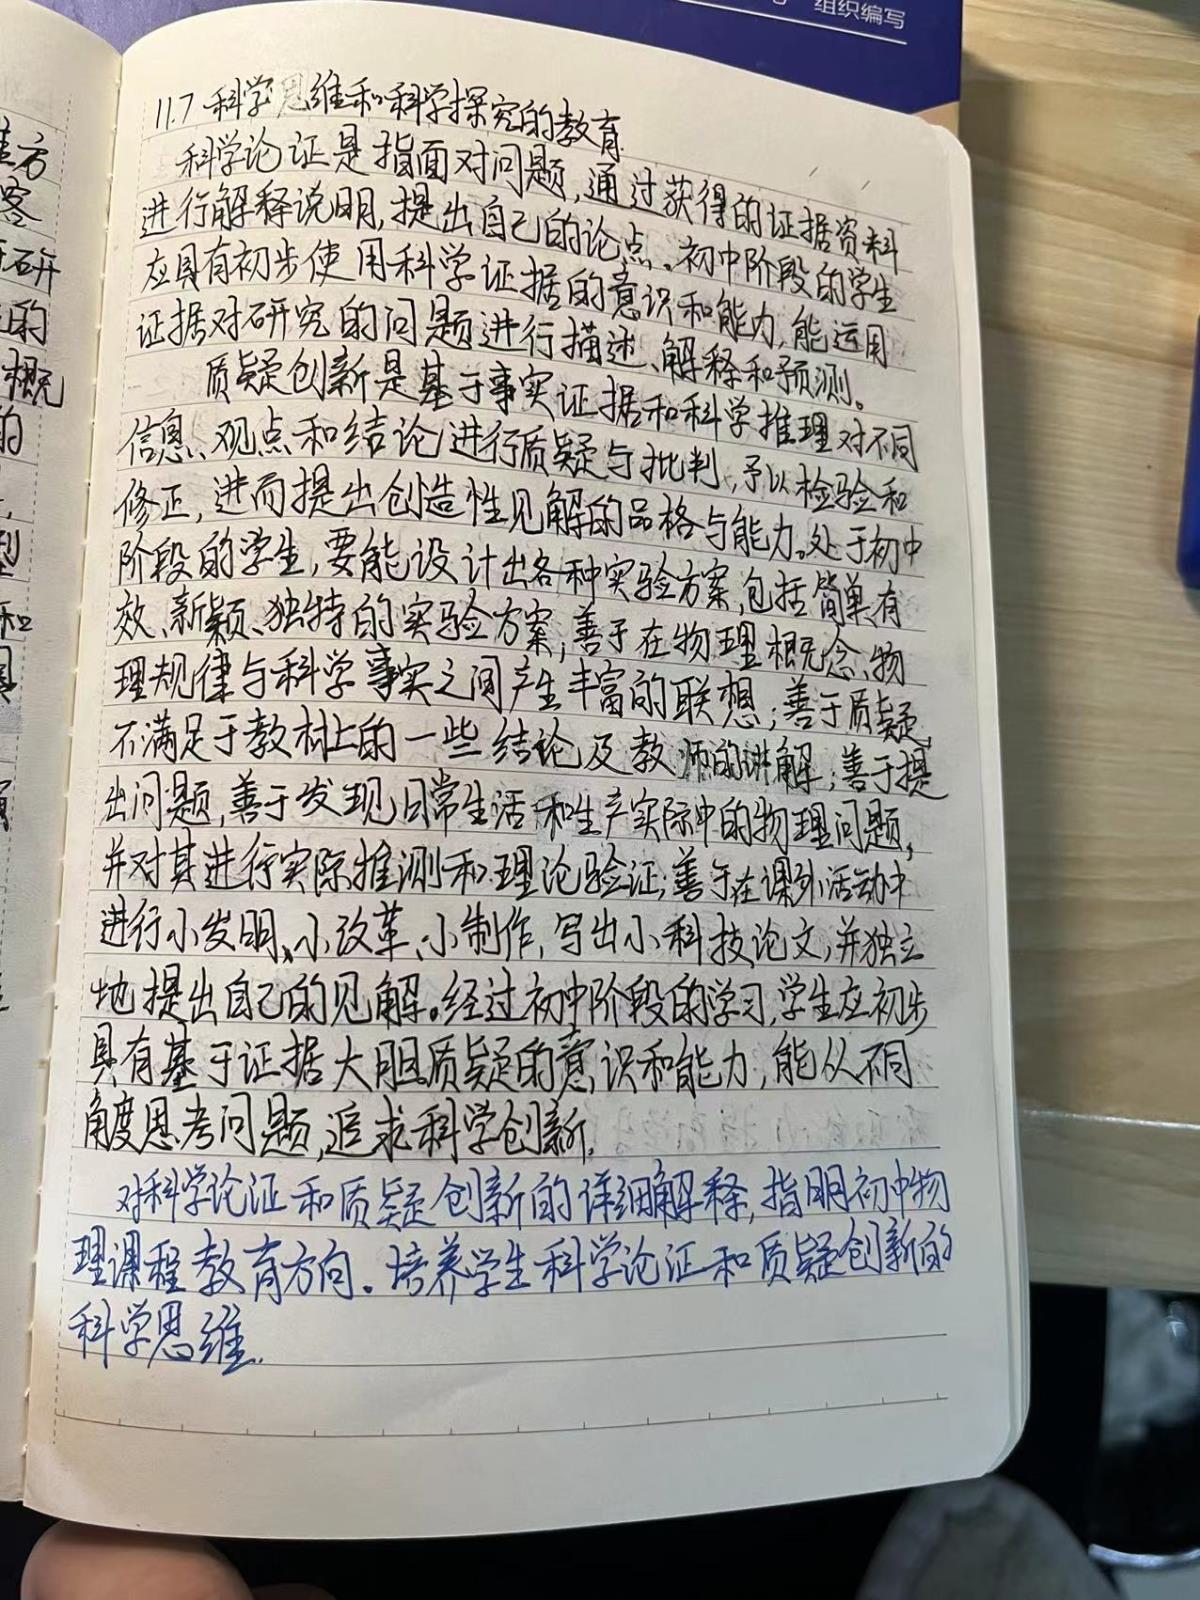 组织编写
11.7 科学思维和科学探究的教育
科学论证是指面对问题,通过获得的证据资料
进行解释说明,提出自己的论点。初中阶段的学生
应具有初步使用科学证据的意识和能力,能运用
证据对研究的问题进行描述、解释和预测。
质疑创新是基于事实证据和科学推理对不同
信息、观点和结论进行质疑与批判,予以检验和
修正,进而提出创造性见解的品格与能力。处于初中
阶段的学生,要能设计出各种实验方案,包括简单有
效、新颖、独特的实验方案;善于在物理概念、物
理规律与科学事实之间产生丰富的联想;善于质疑,
不满足于教材上的一些结论及教师的讲解;善于提
出问题,善于发现日常生活和生产实际中的物理问题,
并对其进行实际推测和理论验证;善于在课外活动中
进行小发明、小改革、小制作,写出小科技论文,并独立
地提出自己的见解。经过初中阶段的学习,学生应初步
具有基于证据大胆质疑的意识和能力,能从不同
角度思考问题,追求科学创新.
对科学论证和质疑创新的详细解释,指明初中物
理课程教育方向。培养学生科学论证和质疑创新的
科学思维.
方
客
研
的
概
的
型
和